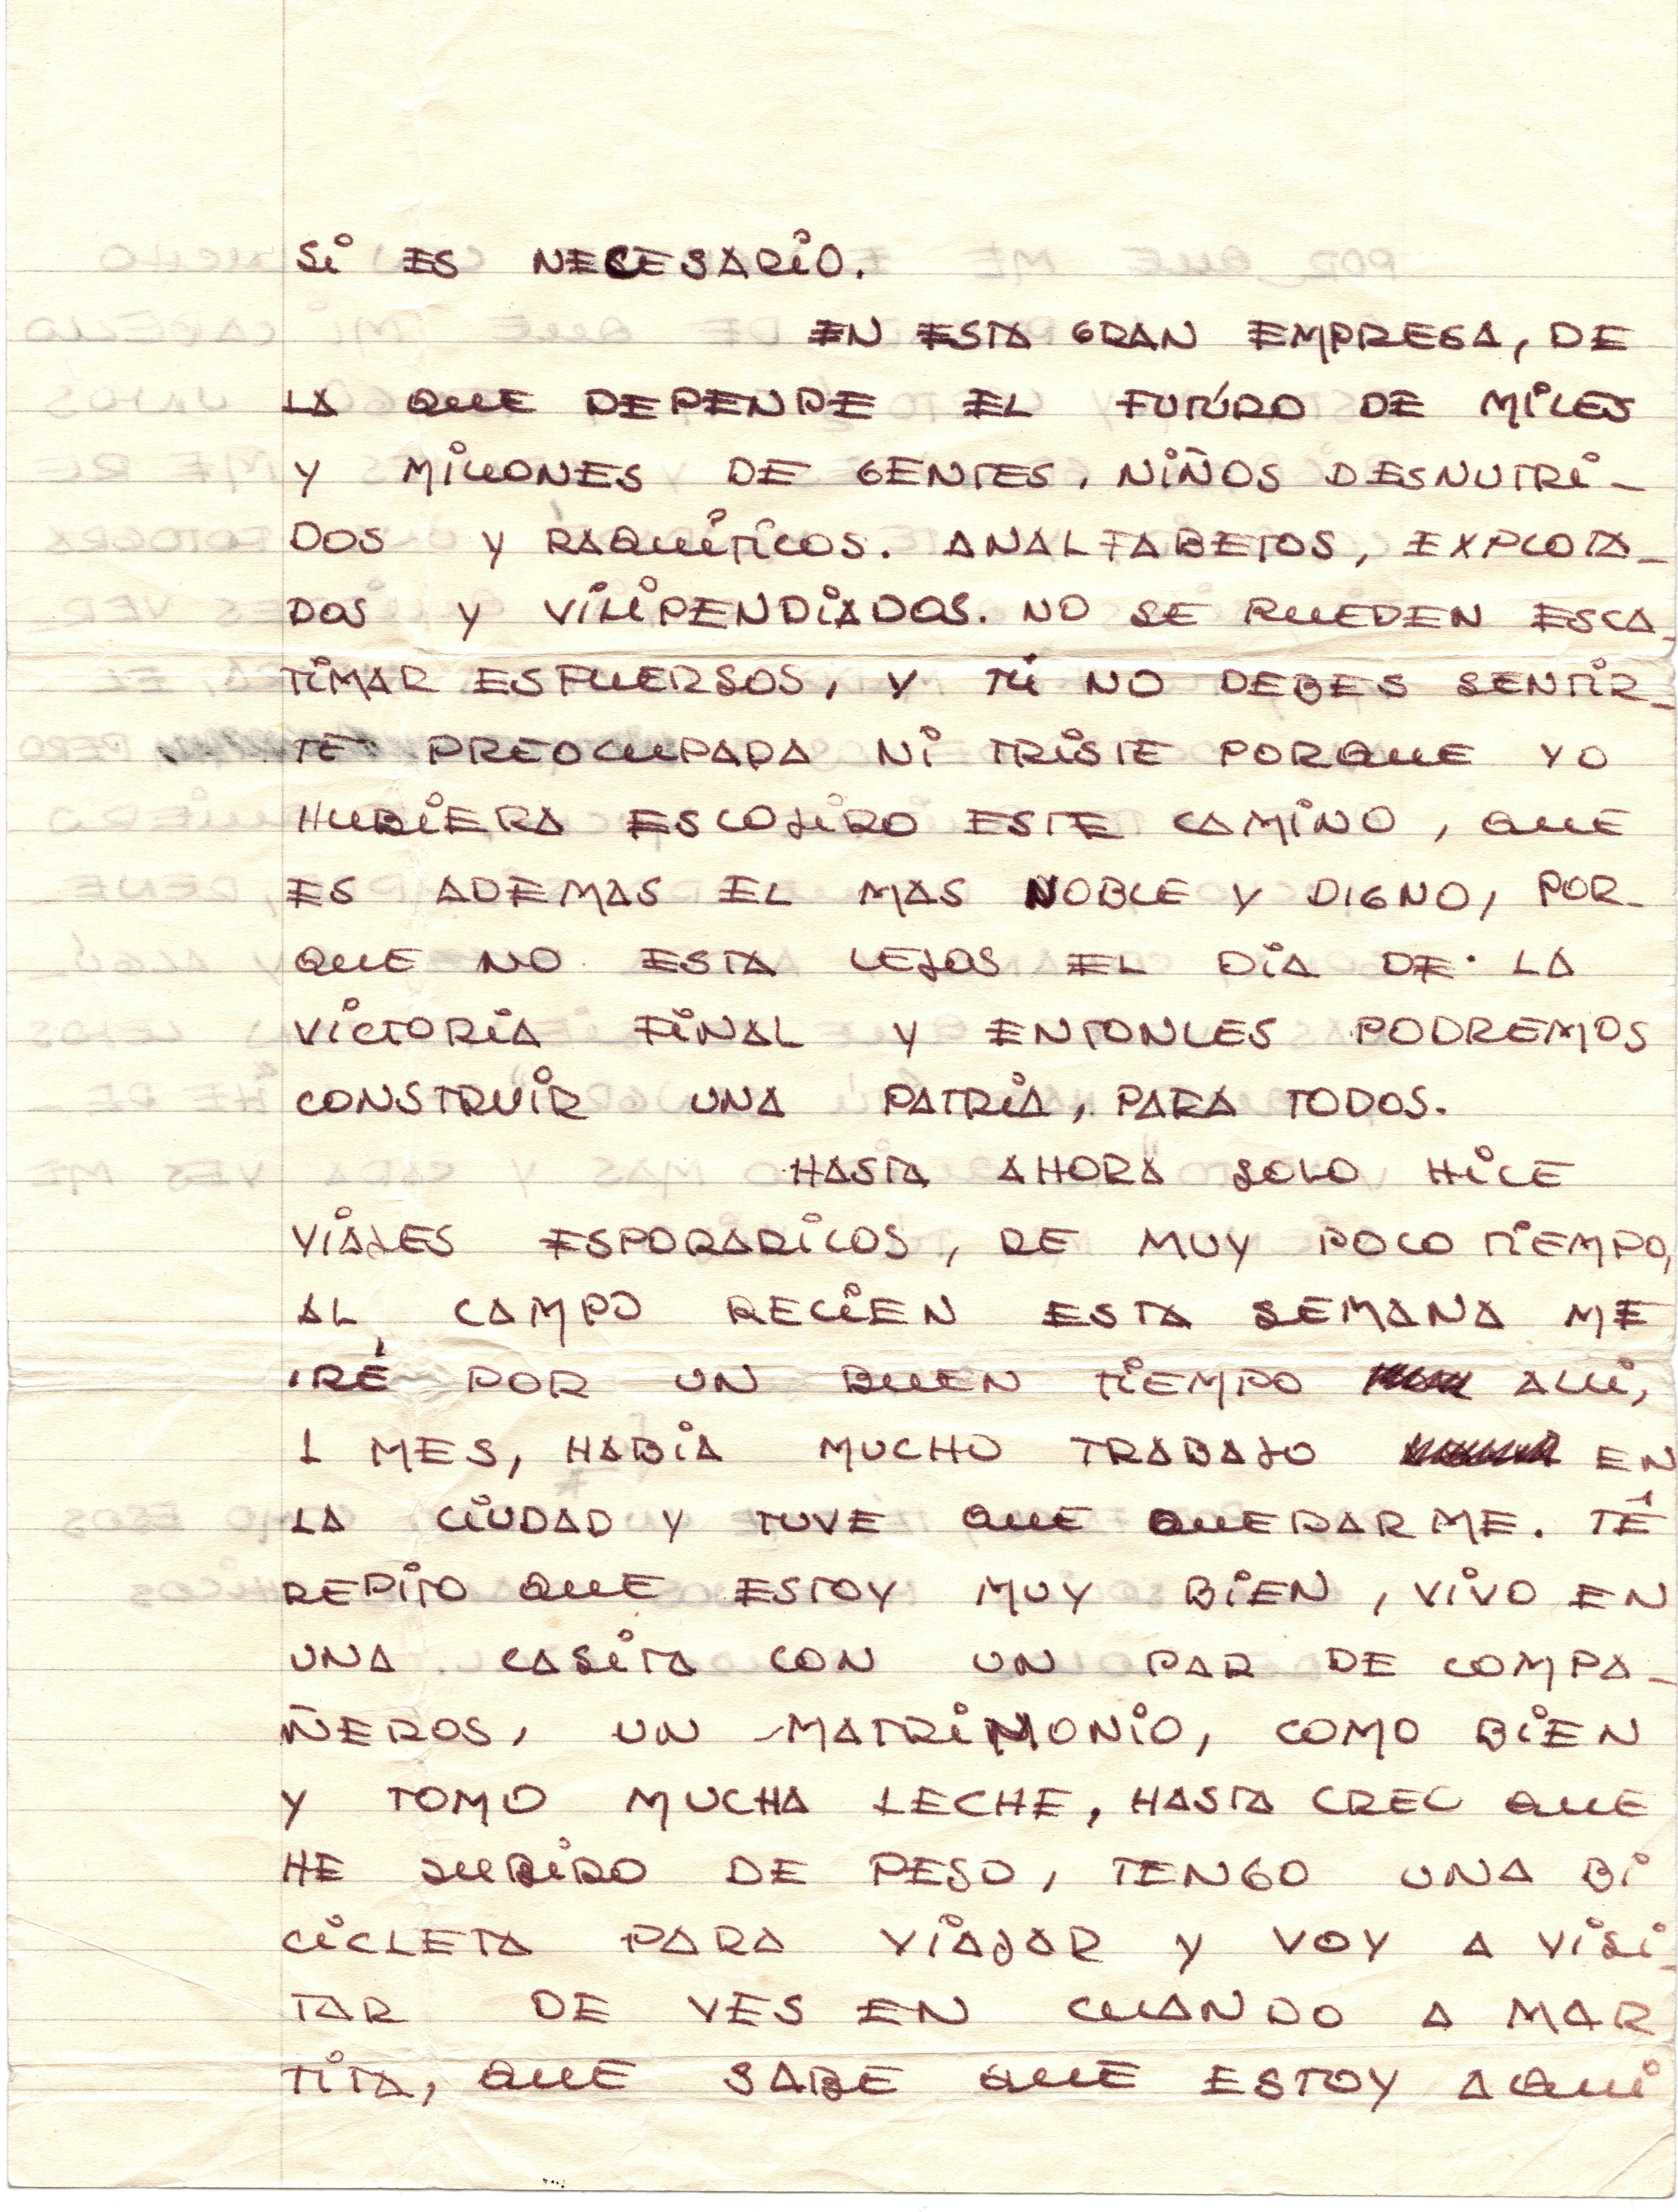 Si ES NECESARIO.
EN ESTA GRAN EMPRESA, DE
LA QUE DEPENDE EL FUTÚRO DE MILES
Y MILLONES DE GENTES. NIÑOS DESNUTRI-
DOS Y RAQUÍTICOS. ANALFABETOS, EXPLOTA-
DOS Y VILIPENDIADOS. NO SE PUEDEN ESCA-
TIMAR ESFUERSOS, Y TÚ NO DEBES SENTIR-
TE PREOCUPADA NI TRISTE PORQUE YO
HUBIERA ESCOJIDO ESTE CAMINO, QUE
ES ADEMAS EL MAS NOBLE Y DIGNO, POR-
QUE NO ESTA LEJOS EL DIA DE LA
VICTORIA FINAL Y ENTONCES PODREMOS
CONSTRUIR UNA PATRIA, PARA TODOS.
HASTA AHORA SOLO HICE
VIAJES ESPORADICOS, DE MUY POCO TIEMPO,
AL CAMPO RECIEN ESTA SEMANA ME
IRÉ POR UN BUEN TIEMPO ALLI,
1 MES, HABIA MUCHO TRABAJO EN
LA CIUDAD Y TUVE QUE QUEDARME. TE
REPITO QUE ESTOY MUY BIEN, VIVO EN
UNA CASITA CON UN PAR DE COMPA-
ÑEROS, UN MATRIMONIO, COMO BIEN
Y TOMO MUCHA LECHE, HASTA CREO QUE
HE SUBIDO DE PESO, TENGO UNA BI
CICLETA PARA VIAJAR Y VOY A VISI-
TAR DE VES EN CUANDO A MAR
TITA, QUE SABE QUE ESTOY AQUI